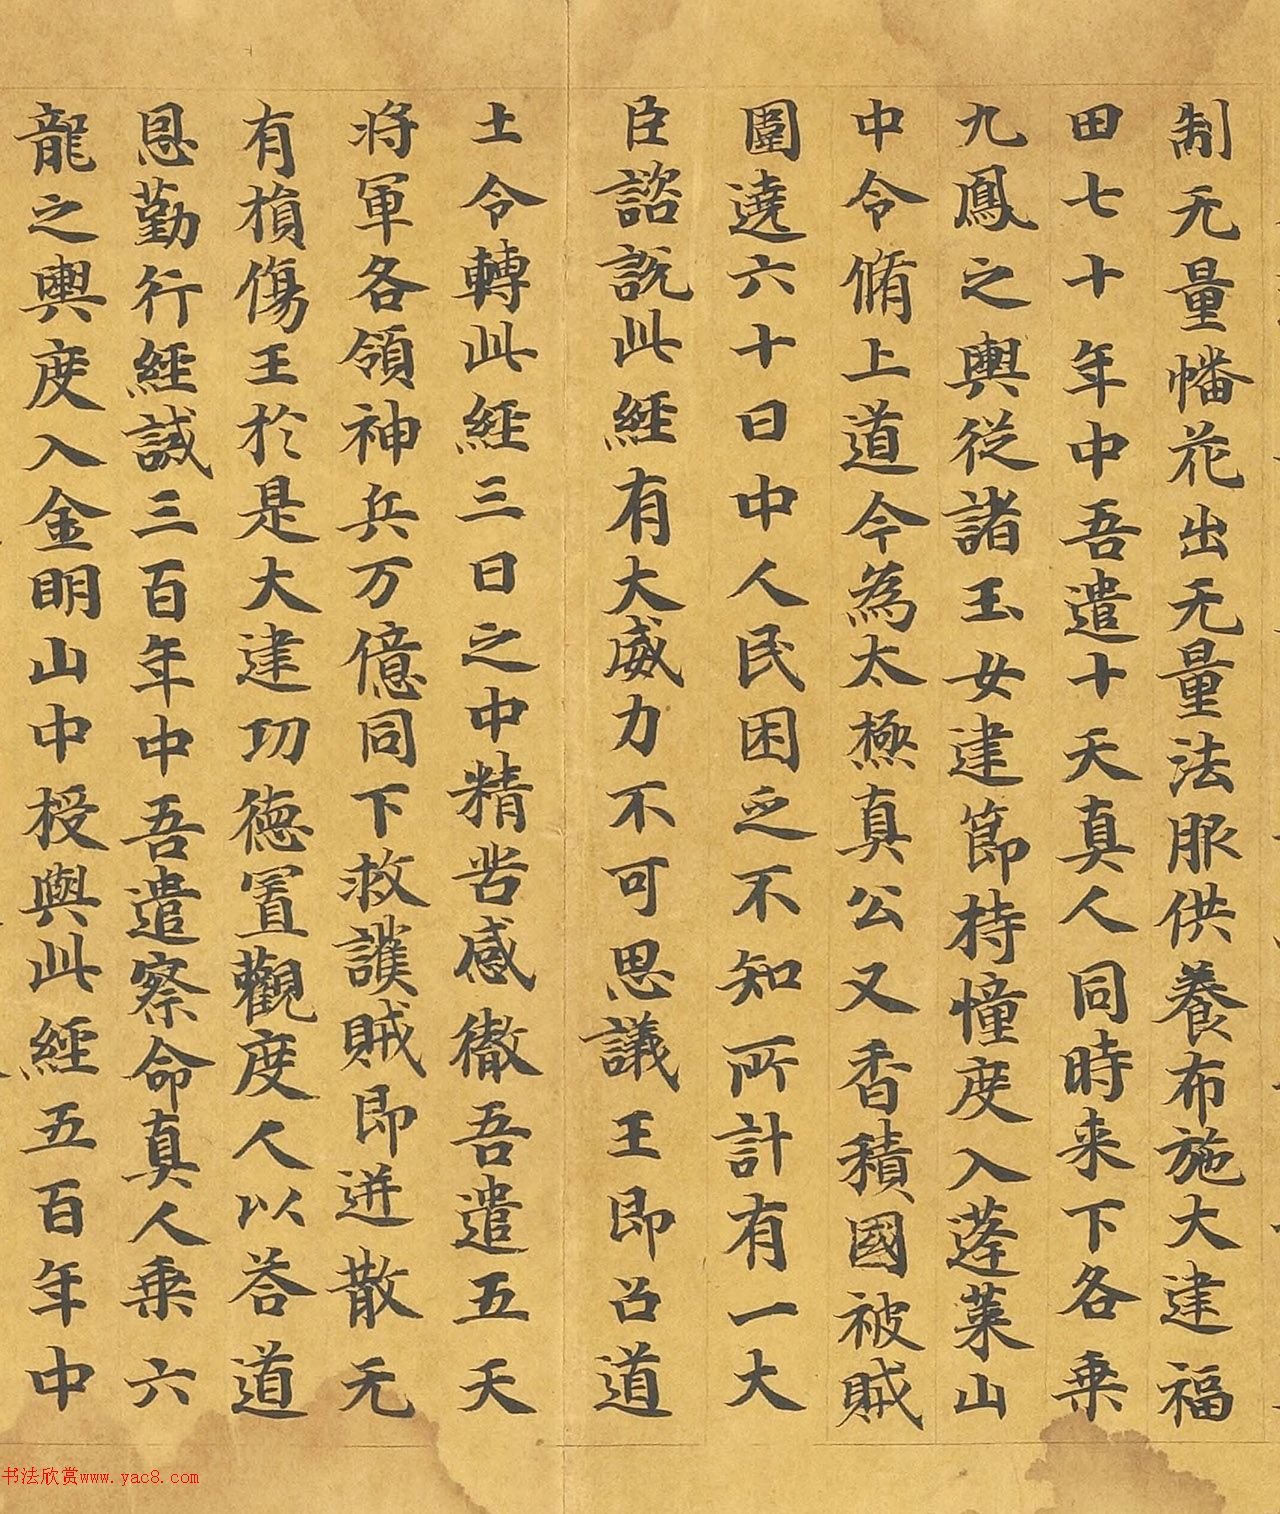 制无量幡花出无量法服供養布施大建福
田七十年中吾遣十天真人同時来下各乗
九鳳之輿從諸玉女建節持幢度入蓬萊山
中令脩上道今為太極真公又香積國被賊
圍遶六十日中人民困乏不知所計有一大
臣諮說此經有大威力不可思議王即召道
士令轉此經三日之中精苦感徹吾遣五天
将軍各領神兵万億同下救護賊即迸散无
有損傷王於是大建功德置觀度人以荅道
恩勤行經誡三百年中吾遣察命真人乗六
龍之輿度入金明山中授與此經五百年中
书法欣赏www.yac8.com